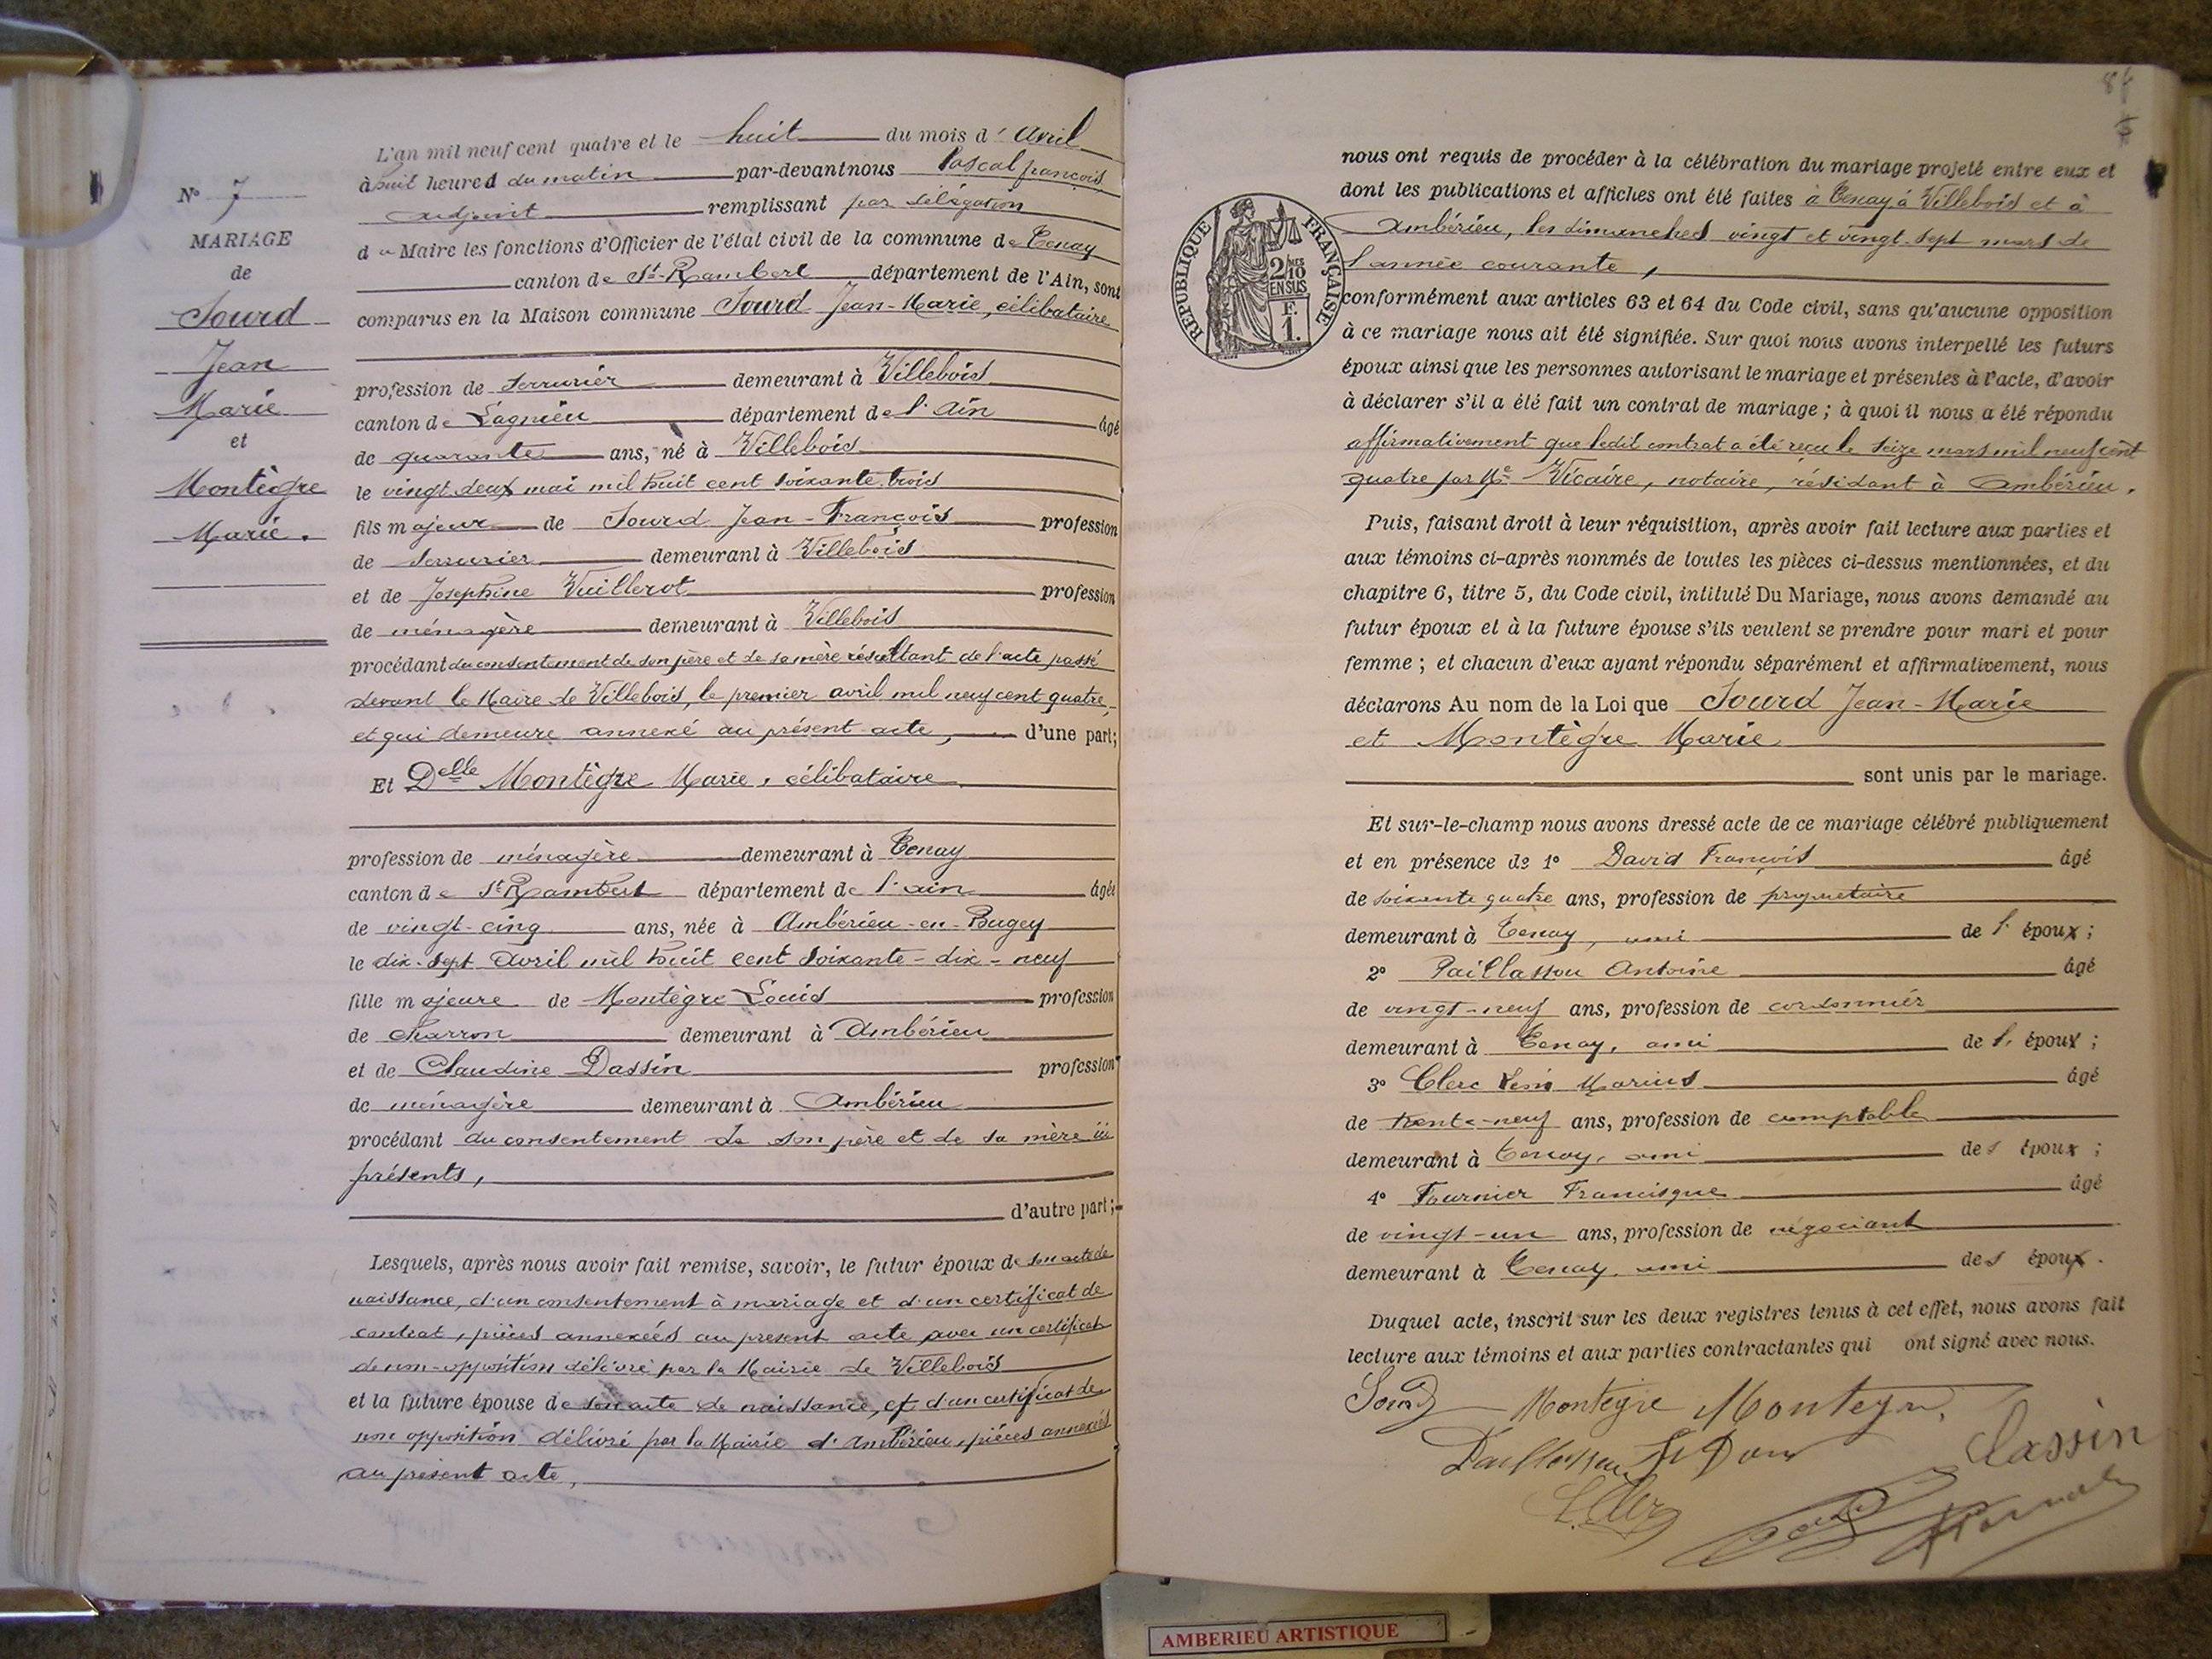 L'an mil neuf cent quatre et le huit du mois d' Avril
à huit heures du matin par-devant nous Pascal françois
adjoint remplissant par délégation
du Maire les fonctions d'Officier de l'état civil de la commune de Tenay
canton de St-Rambert département de l'Ain, sont
comparus en la Maison commune Sourd Jean-Marie, célibataire
profession de serrurier demeurant à Villebois
canton de Lagnieu département de l'Ain âgé
de quarante ans, né à Villebois
le vingt deux mai mil huit cent soixante trois
fils majeur de Sourd Jean-François profession
de serrurier demeurant à Villebois
et de Joséphine Vuillerot profession
de ménagère demeurant à Villebois
procédant du consentement de son père et de sa mère résultant de l'acte passé
devant le Maire de Villebois, le premier avril mil neuf cent quatre,
et qui demeure annexé au présent acte, d'une part;
Et Delle Montègre Marie, célibataire
profession de ménagère demeurant à Tenay
canton de St Rambert département de l'ain âgée
de vingt-cinq ans, née à Ambérieu-en-Bugey
le dix-sept Avril mil huit cent soixante-dix-neuf
fille majeure de Montègre Louis profession
de charron demeurant à Ambérieu
et de Claudine Dassin profession
de ménagère demeurant à Ambérieu
procédant du consentement de son père et de sa mère ici
présents,
d'autre part;
Lesquels, après nous avoir fait remise, savoir, le futur époux de son acte de
naissance, d'un consentement à mariage et d'un certificat de
contrat, pièces annexées au présent acte avec un certificat
de non-opposition délivré par la Mairie de Villebois
et la future épouse de son acte de naissance, et d'un certificat de
non opposition délivré par la Mairie d'Ambérieu, pièces annexées
au présent acte,
N° 7
MARIAGE
de
Sourd
Jean
Marie
et
Montègre
Marie.
nous ont requis de procéder à la célébration du mariage projeté entre eux et
dont les publications et affiches ont été faites à Tenay à Villebois et à
Ambérieu, les dimanches vingt et vingt-sept mars de
l'année courante,
conformément aux articles 63 et 64 du Code civil, sans qu'aucune opposition
à ce mariage nous ait été signifiée. Sur quoi nous avons interpellé les futurs
époux ainsi que les personnes autorisant le mariage et présentes à l'acte, d'avoir
à déclarer s'il a été fait un contrat de mariage; à quoi il nous a été répondu
affirmativement que ledit contrat a été reçu le seize mars mil neuf cent
quatre par Me Vicaire, notaire, résidant à Ambérieu.
Puis, faisant droit à leur réquisition, après avoir fait lecture aux parties et
aux témoins ci-après nommés de toutes les pièces ci-dessus mentionnées, et du
chapitre 6, titre 5, du Code civil, intitulé Du Mariage, nous avons demandé au
futur époux et à la future épouse s'ils veulent se prendre pour mari et pour
femme; et chacun d'eux ayant répondu séparément et affirmativement, nous
déclarons Au nom de la Loi que Sourd Jean-Marie
et Montègre Marie
sont unis par le mariage.
Et sur-le-champ nous avons dressé acte de ce mariage célébré publiquement
et en présence de 1° David François âgé
de soixante quatre ans, profession de propriétaire
demeurant à Tenay, ami de l' époux;
2° Paillasson Antoine âgé
de vingt-neuf ans, profession de cordonnier
demeurant à Tenay, ami de l' époux;
3° Clerc Marius âgé
de trente-neuf ans, profession de comptable
demeurant à Tenay, ami des époux;
4° Fournier Francisque âgé
de vingt-un ans, profession de négociant
demeurant à Tenay, ami des époux.
Duquel acte, inscrit sur les deux registres tenus à cet effet, nous avons fait
lecture aux témoins et aux parties contractantes qui ont signé avec nous.
Sourd Montègre
RÉPUBLIQUE FRANÇAISE
2/10
EN SUS
F.
1.
AMBERIEU ARTISTIQUE